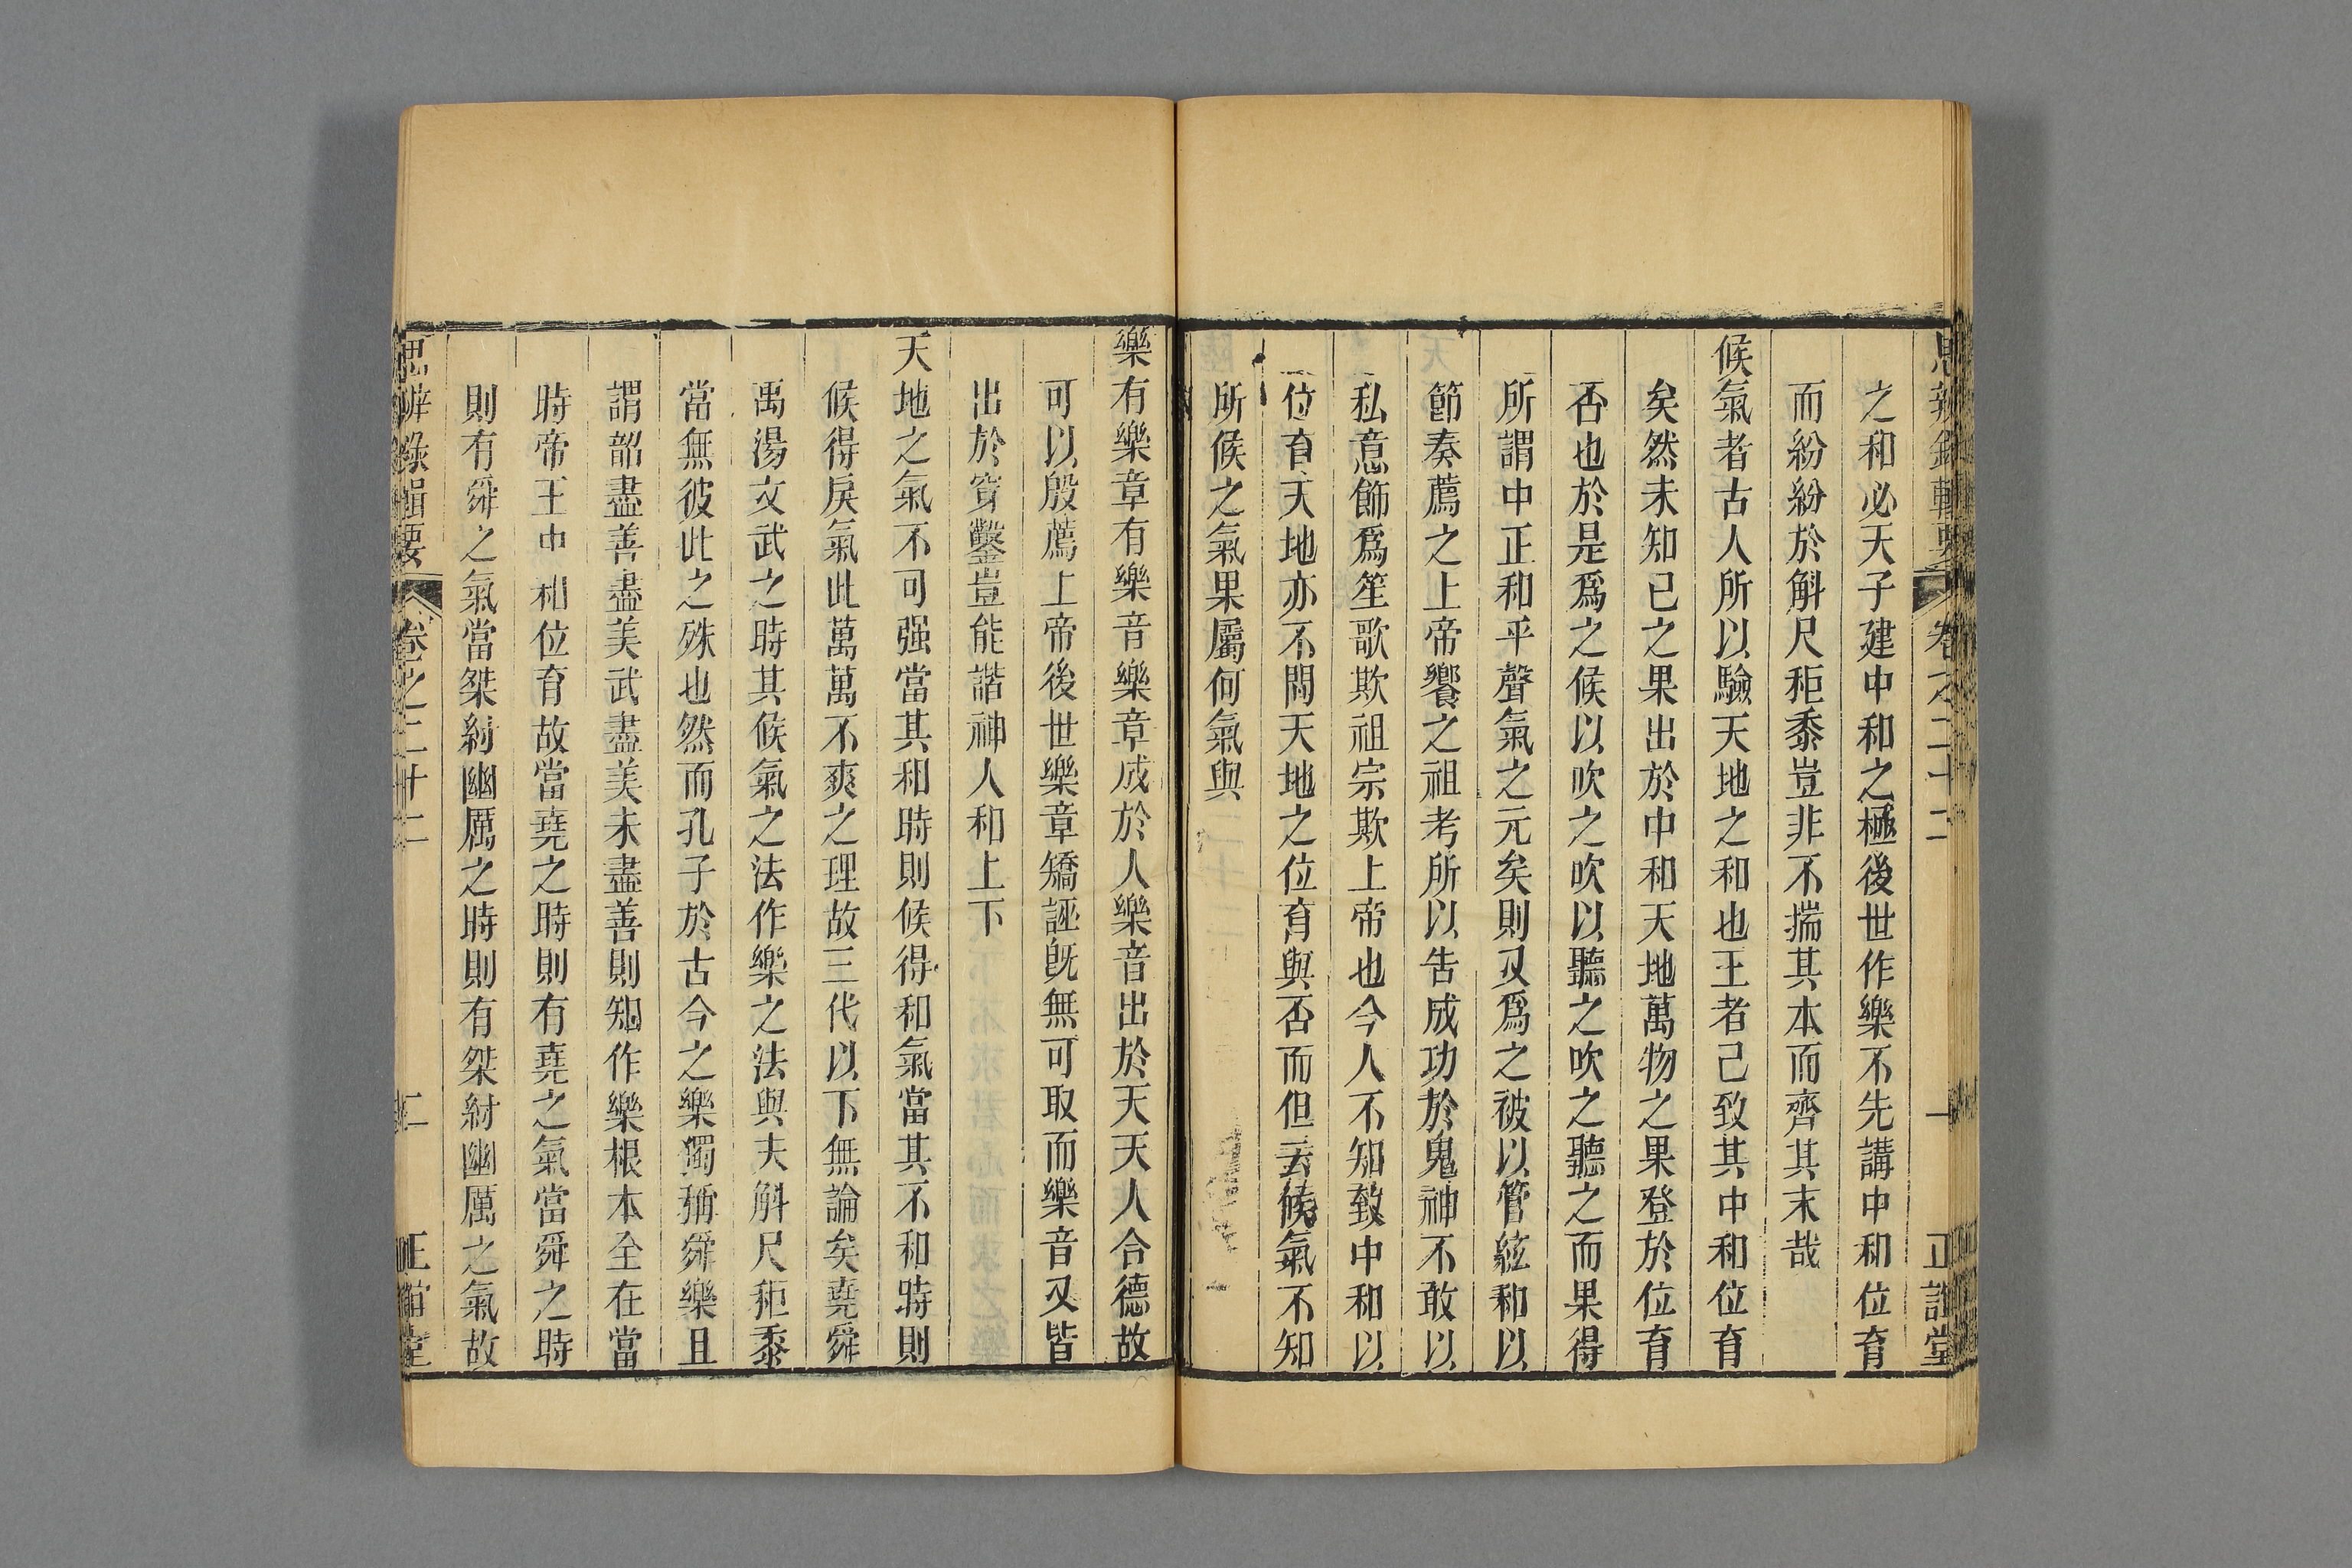 思辨錄輯要 卷之二十二 一 正誼堂
之和必天子建中和之極後世作樂不先講中和位育
而紛紛於斛尺秬黍豈非不揣其本而齊其末哉
候氣者古人所以驗天地之和也王者己致其中和位育
矣然未知已之果出於中和天地萬物之果登於位育
否也於是爲之候以吹之吹以聽之吹之聽之而果得
所謂中正和平聲氣之元矣則又爲之被以管絃和以
節奏薦之上帝饗之祖考所以告成功於鬼神不敢以
私意飾爲笙歌欺祖宗欺上帝也今人不知致中和以
位育天地亦不問天地之位育與否而但云候氣不知
所候之氣果屬何氣與
樂有樂章有樂音樂章成於人樂音出於天天人合德故
可以殷薦上帝後世樂章矯誣旣無可取而樂音又皆
出於穿鑿豈能諧神人和上下
天地之氣不可强當其和時則候得和氣當其不和時則
候得戾氣此萬萬不爽之理故三代以下無論矣堯舜
禹湯文武之時其候氣之法作樂之法與夫斛尺秬黍
當無彼此之殊也然而孔子於古今之樂獨稱舜樂且
謂韶盡善盡美武盡美未盡善則知作樂根本全在當
時帝王中和位育故當堯之時則有堯之氣當舜之時
則有舜之氣當桀紂幽厲之時則有桀紂幽厲之氣故
思辨錄輯要 卷之二十二 二 正誼堂